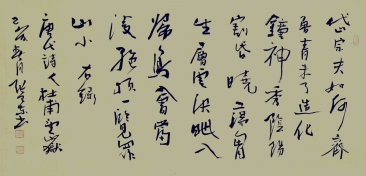 岱宗夫如何齐
鲁青未了造化
钟神秀阴阳
割昏晓荡胸
生层云决眦入
归鸟会当
凌绝顶一览众
山小 右录
唐代诗人杜甫望岳